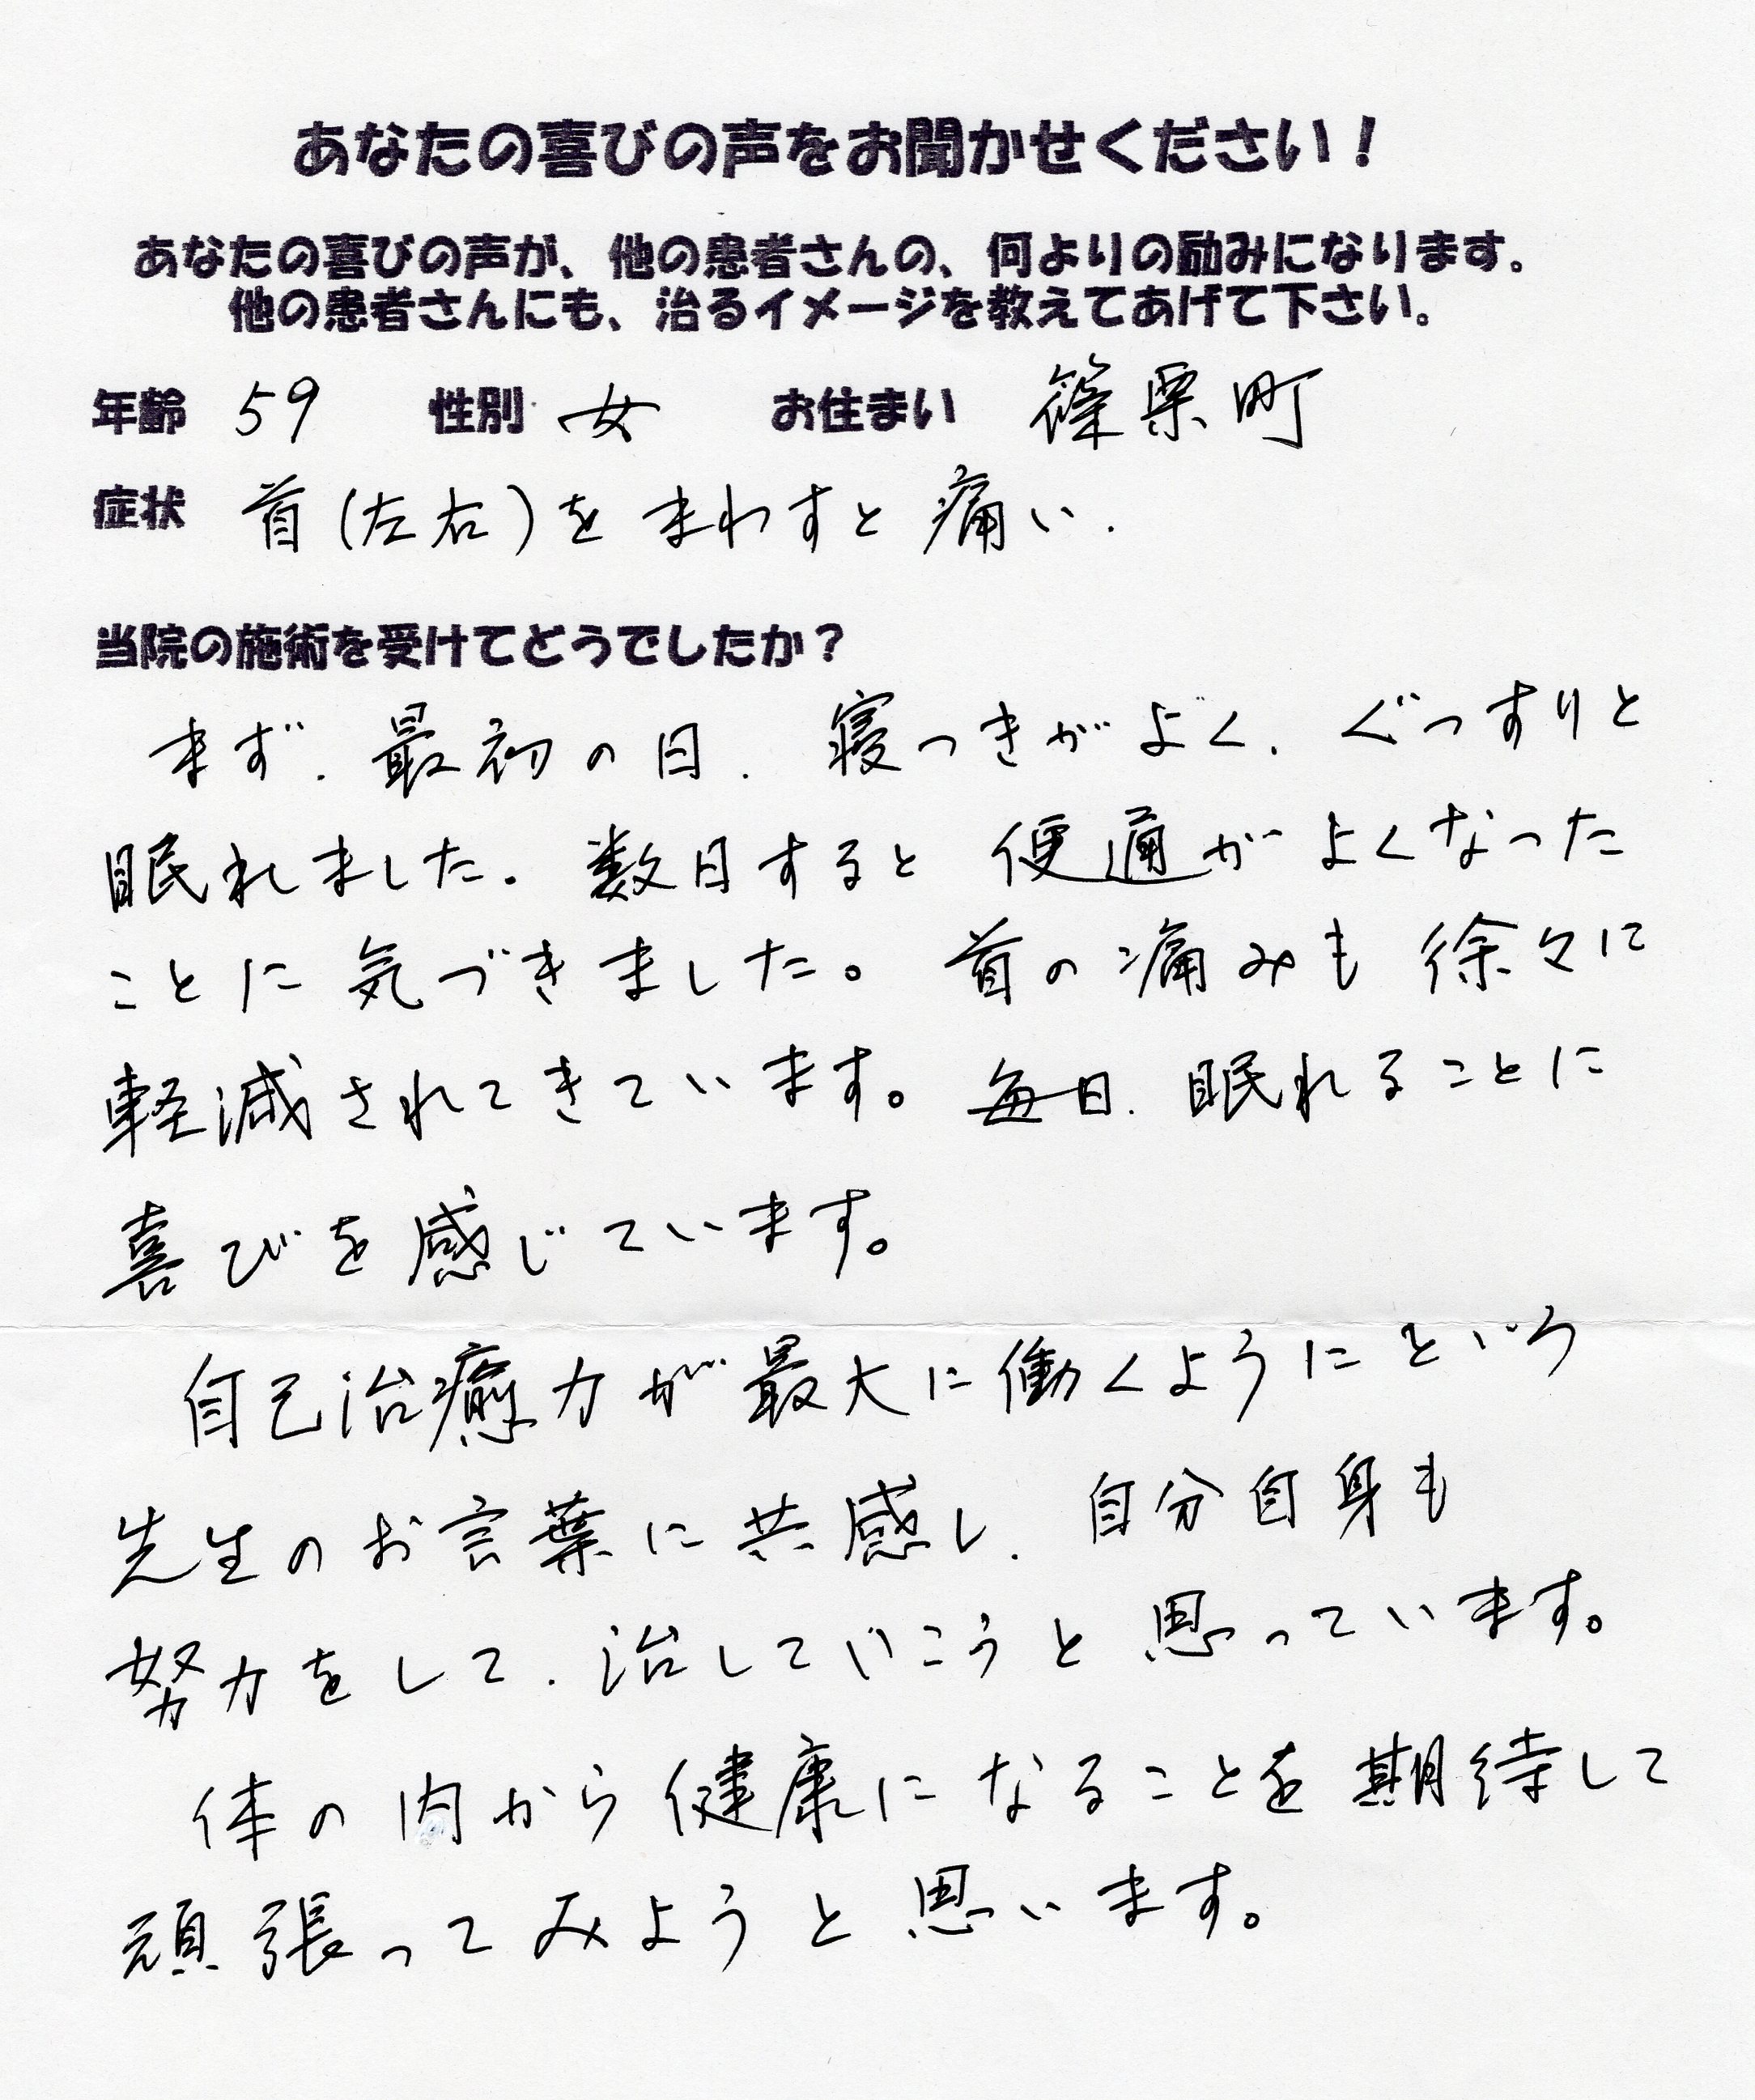 あなたの喜びの声をお聞かせください！
あなたの喜びの声が、他の患者さんの、何よりの励みになります。
他の患者さんにも、治るイメージを教えてあげて下さい。
年齢 59 性別 女 お住まい 篠栗町
症状 首(左右)をまわすと痛い.
当院の施術を受けてどうでしたか？
まず、最初の日、寝つきがよく、ぐっすりと
眠れました。数日すると便通がよくなった
ことに気づきました。首の痛みも徐々に
軽減されてきています。毎日、眠れることに
喜びを感じています。
自己治癒力が最大に働くようにという
先生のお言葉に共感し、自分自身も
努力をして、治していこうと思っています。
体の内から健康になることを期待して
頑張ってみようと思います。